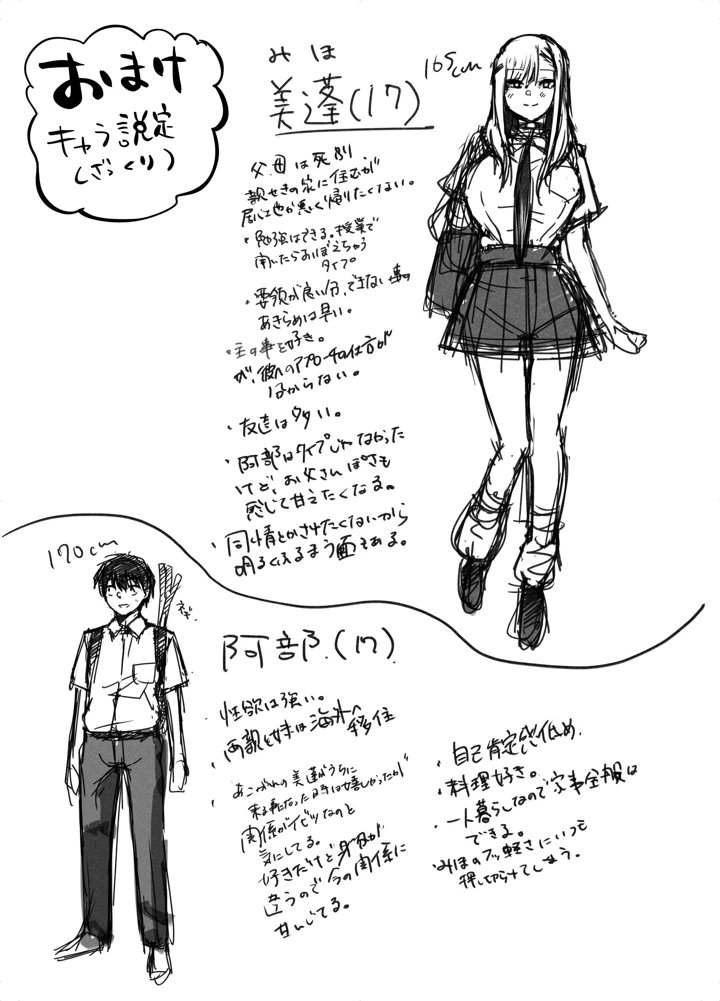 おまけ
キャラ設定
(ざっくり)
みほ
美蓬(17)
165cm
父母は死別
親せきの家に住むが
居心地が悪く帰りたくない。
・勉強はできる。授業で
聞いたらおぼえちゃう
タイプ
・要領が良い分、できない事の
あきらめは早い。
・主の事を好き。
が、彼へのアプローチの仕方が
わからない。
・友達は多い。
・阿部はタイプじゃなかった
けど、お父さんぽさも
感じて甘えたくなる。
・同情とかされたくないから
明るくふるまう面もある。
170cm
ネギ
阿部(17)
・性欲は強い。
・両親と妹は海外へ
移住
・あこがれの美蓬がうちに
来る事になった時は嬉しかったが
関係がイビツなのと
気にしてる。
好きだけど身分が
違うので今の関係に
甘んじてる。
・自己肯定感低め。
・料理好き。
・一人暮らしなので家事全般は
できる。
・みほのフッ軽さにいつも
押し切られてしまう。